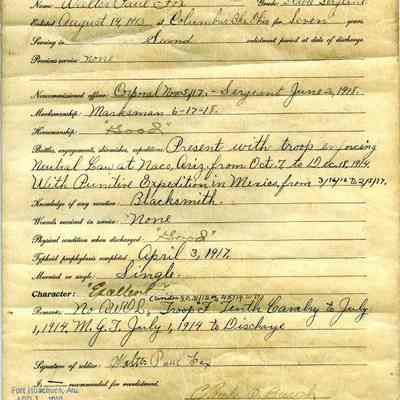 Name: Walter Paul Fox Grade: Sergeant
Enlisted August 14, 1913 at Columbus Bks Ohio for Seven years
Serving in Second enlistment period at date of discharge
Previous service: None
Noncommissioned officer: Corporal Nov 5/17. - Sergeant June 2, 1918.
Marksmanship: Marksman 6-17-18.
Horsemanship: "Good"
Battles, engagements, skirmishes, expeditions: Present with troop enforcing
Neutral Law at Naco, Ariz. from Oct. 7 to Dec. 18, 1914.
With Punitive Expedition in Mexico, from 3/16/16 to 2/5/17.
Knowledge of any vocation: Blacksmith.
Wounds received in service: None
Physical condition when discharged: "Good"
Typhoid prophylaxis completed April 3, 1917.
Married or single: Single.
Character: "Excellent"
Remarks: No A.W.O.L. Troop "F" Tenth Cavalry to July
1, 1914. M.G.T. July 1, 1914 to Discharge
Signature of soldier: Walter Paul Fox
Is recommended for reenlistment.
Fort Huachuca, Ariz.